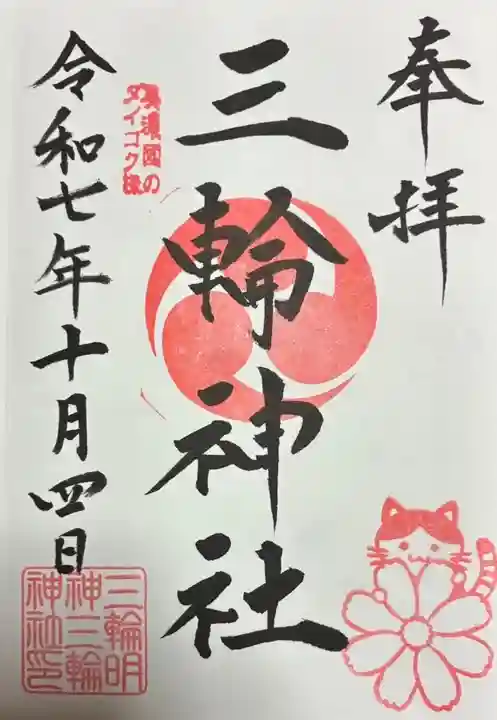 奉拝
三輪神社
美濃國の
ダイゴク様
令和七年十月四日
三輪明
神三輪
神社印